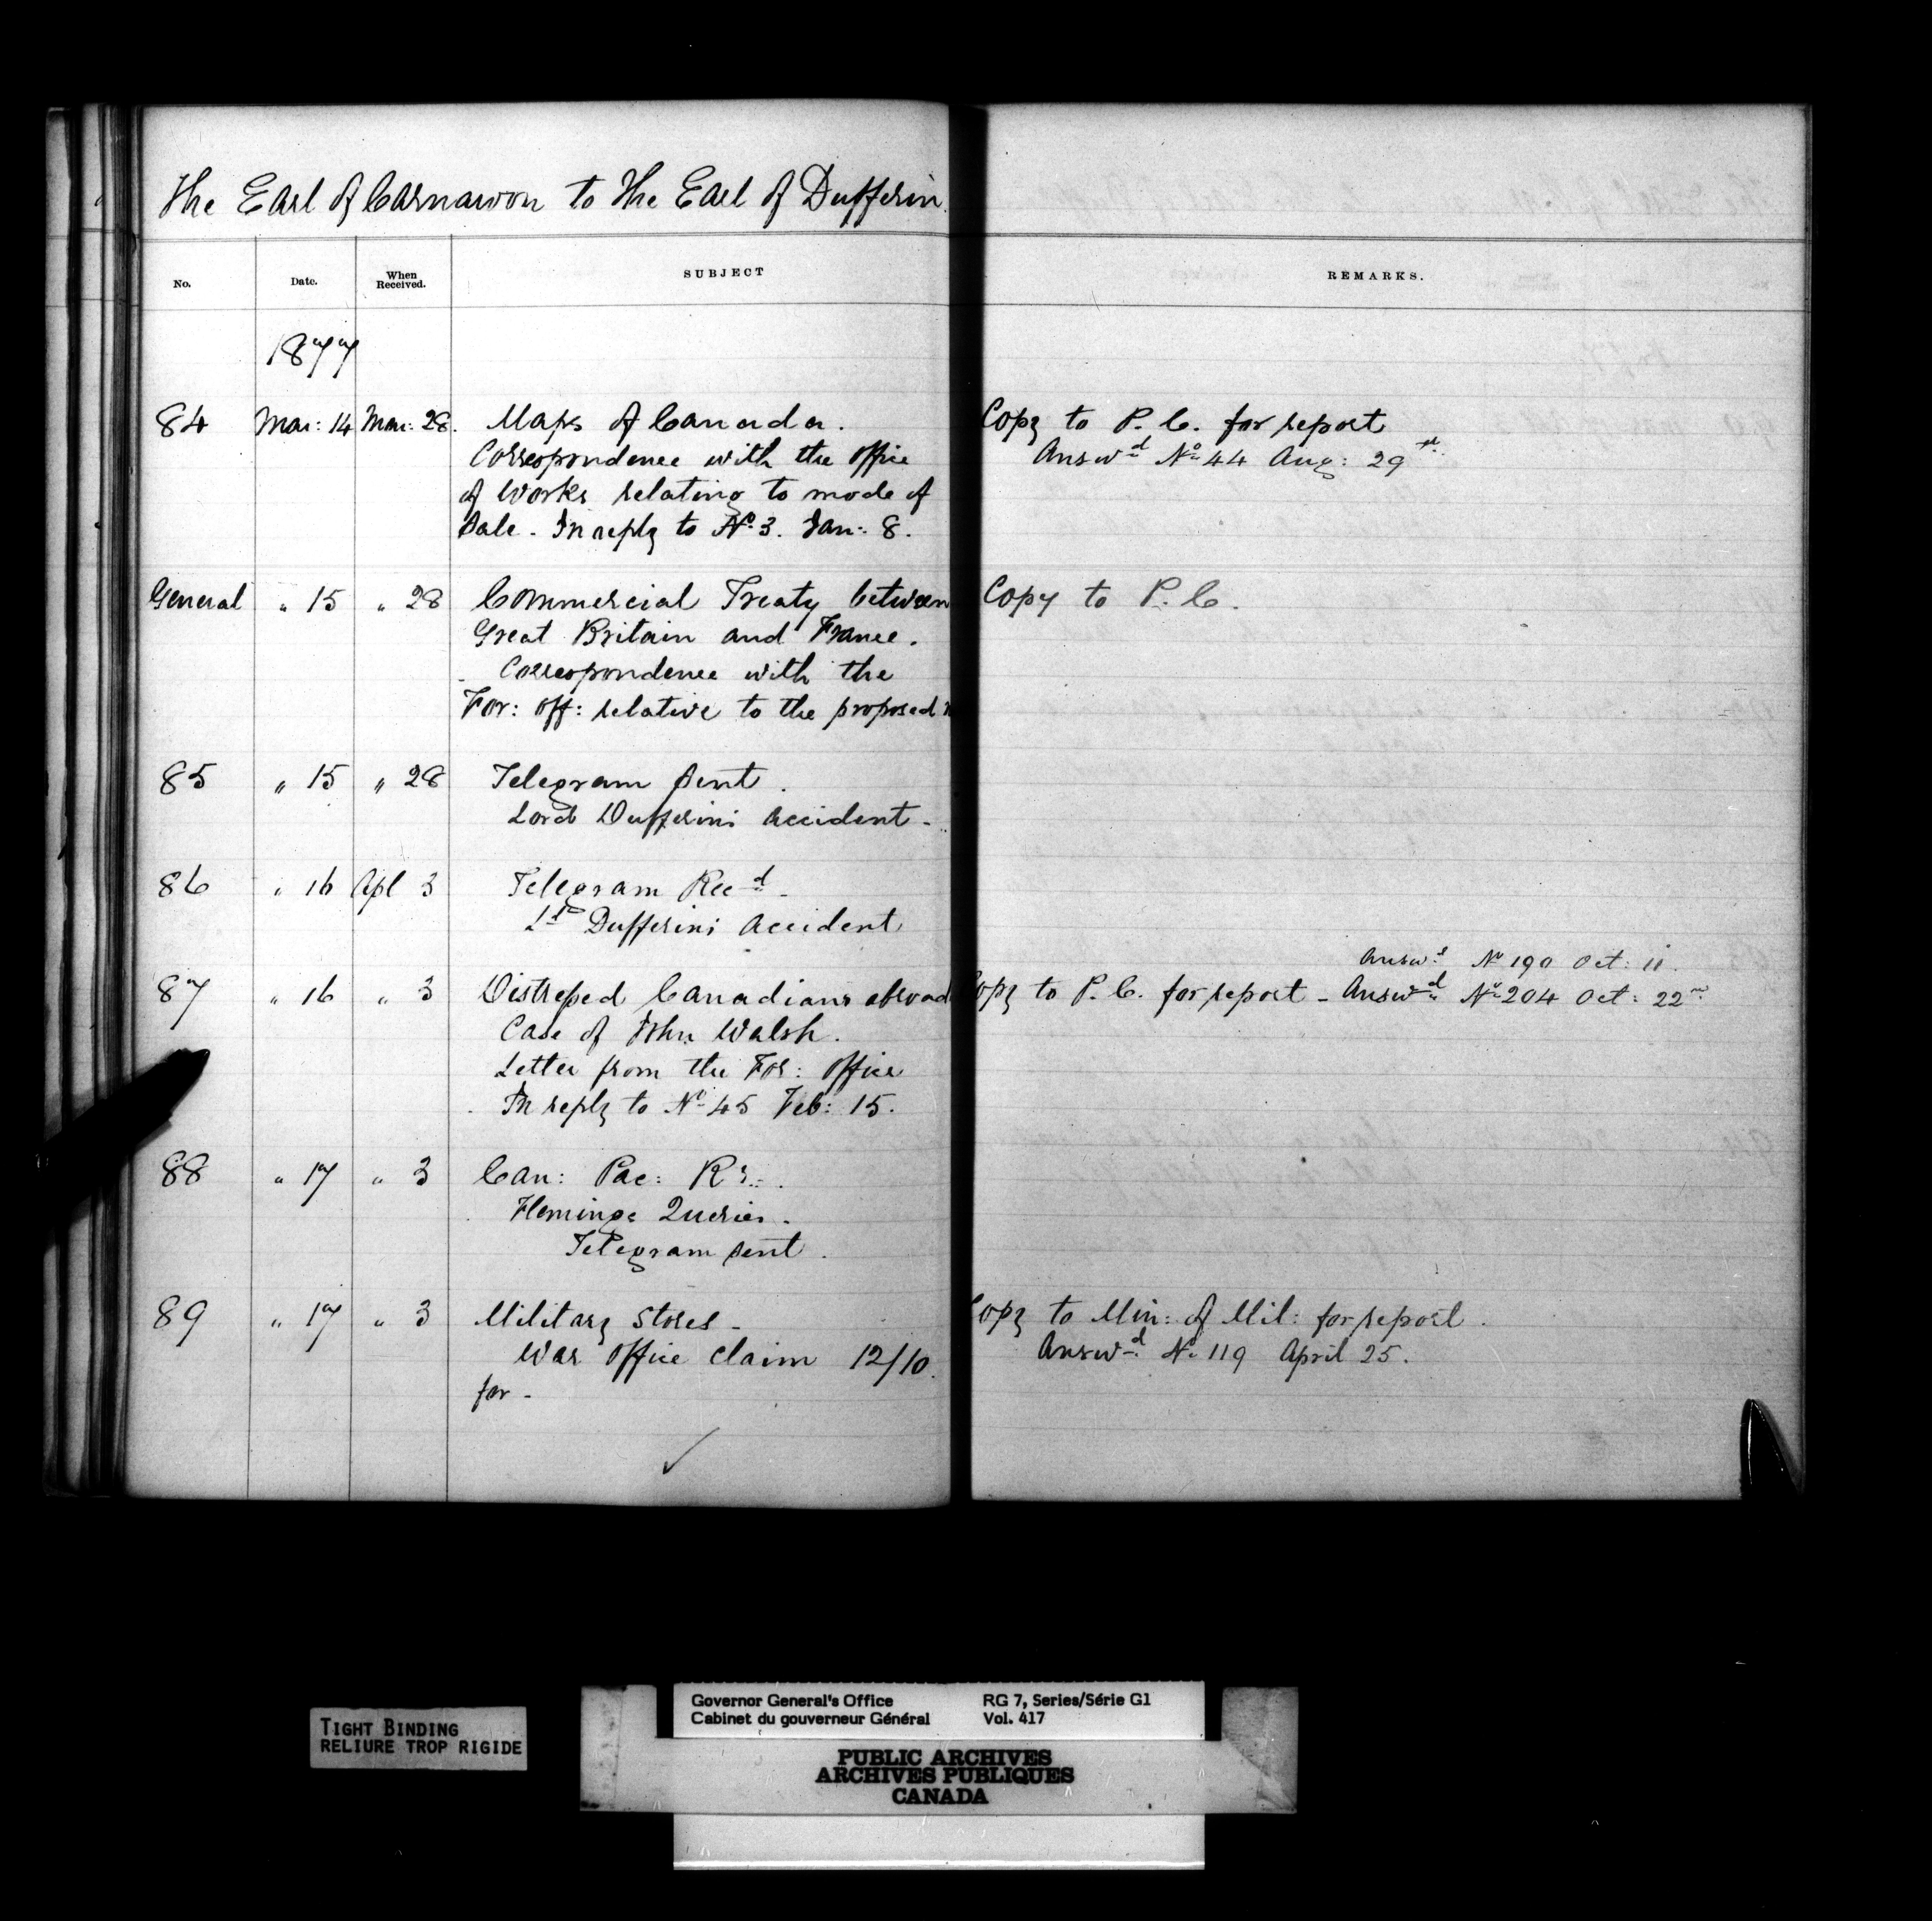 The Earl of Carnarvon to The Earl of Dufferin
No. Date. When Received. SUBJECT REMARKS.
1877
84 Mar: 14 Mar: 28. Maps of Canada. Copy to P. C. for report
Correspondence with the Office Answd No 44 Aug: 29
of Works relating to mode of
Sale. In reply to No 3. Jan: 8.
General " 15 " 28 Commercial Treaty between Copy to P. C.
Great Britain and France.
Correspondence with the
For: Off: relative to the proposed
85 " 15 " 28 Telegram sent.
Lord Dufferins accident -
86 " 16 Apl 3 Telegram Recd -
Ld Dufferins accident
Answd No 190 Oct: 11.
87 " 16 " 3 Distressed Canadians abroad opy to P. C. for report - Answd No 204 Oct: 22
Case of John Walsh.
Letter from the For: Office
In reply to No 45 Feb: 15.
88 " 17 " 3 Can: Pac: Ry.
Flemings Queries.
Telegram sent.
89 " 17 " 3 Military Stores - opy to Min: of Mil: for report.
War Office claim 12/10. Answd No 119 April 25.
for -
TIGHT BINDING
RELIURE TROP RIGIDE
Governor General's Office RG 7, Series/Série G1
Cabinet du gouverneur Général Vol. 417
PUBLIC ARCHIVES
ARCHIVES PUBLIQUES
CANADA